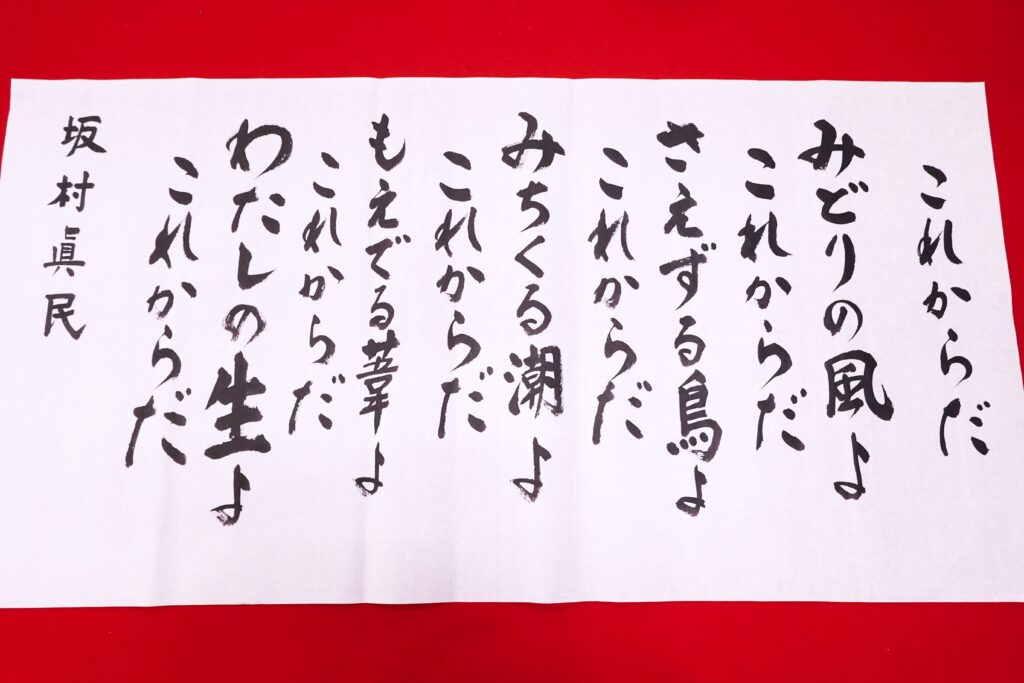 これからだ
みどりの風よ
これからだ
さえずる鳥よ
これからだ
みちくる潮よ
これからだ
もえでる葦よ
これからだ
わたしの生よ
これからだ
坂村眞民